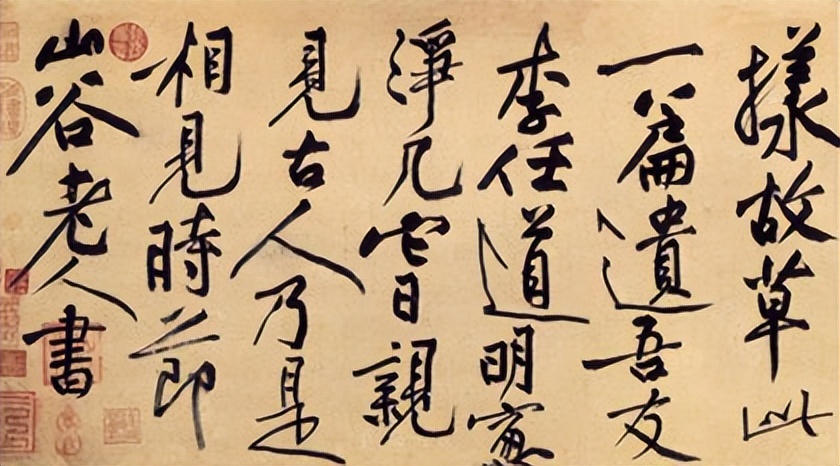 樣故草此
一篇遺吾友
李任道明窻
淨几它日親
見古人乃是
相見時節
山谷老人書